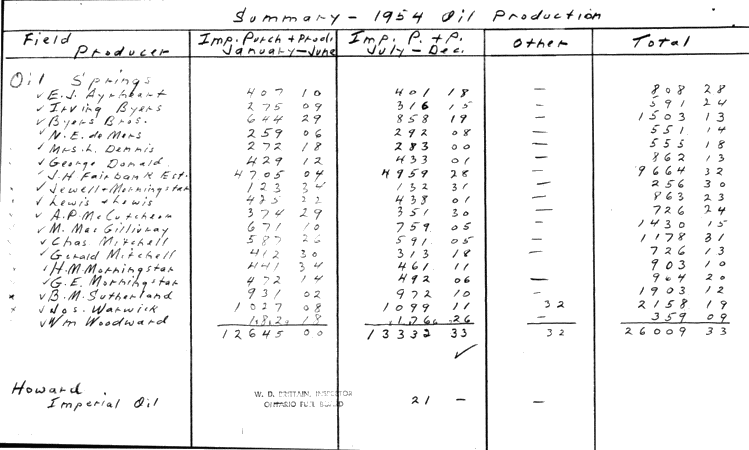 Summary - 1954 Oil Production
Field Producer Imp. Purch + Prod. January-June Imp. P. + P. July - Dec. Other Total
Oil Springs
✓ E.J. Ayrheart 407 10 401 18 — 808 28
✓ Irving Byers 275 09 316 15 — 591 24
✓ Byers Bros. 644 29 858 19 — 1503 13
✓ N.E. de Mers 259 06 292 08 — 551 14
✓ Mrs. L. Dennis 272 18 283 00 — 555 18
✓ George Donald 429 12 433 01 — 862 13
✓ J.H Fairbank Est. 4705 04 4959 28 — 9664 32
✓ Jewell + Morningstar 123 34 132 31 — 256 30
✓ Lewis + Lewis 425 22 438 01 — 863 23
✓ A.P. McCutcheon 374 29 351 30 — 726 24
✓ M. Mac Gillivray 671 10 759 05 — 1430 15
✓ Chas. Mitchell 587 26 591 05 — 1178 31
✓ Gerald Mitchell 412 30 313 18 726 13
✓ H.M. Morningstar 441 34 461 11 903 10
✓ G.E. Morningstar 472 14 492 06 — 964 20
x ✓ B.M. Sutherland 931 02 972 10 — 1903 12
x ✓ Jos. Warwick 1027 08 1099 11 32 2158 19
✓ Wm Woodward 182 18 176 26 — 359 09
12645 00 13332 33 32 26009 33
✓
Howard
Imperial Oil 21 — —
W. D. BRITTAIN, INSPECTOR
ONTARIO FUEL BOARD